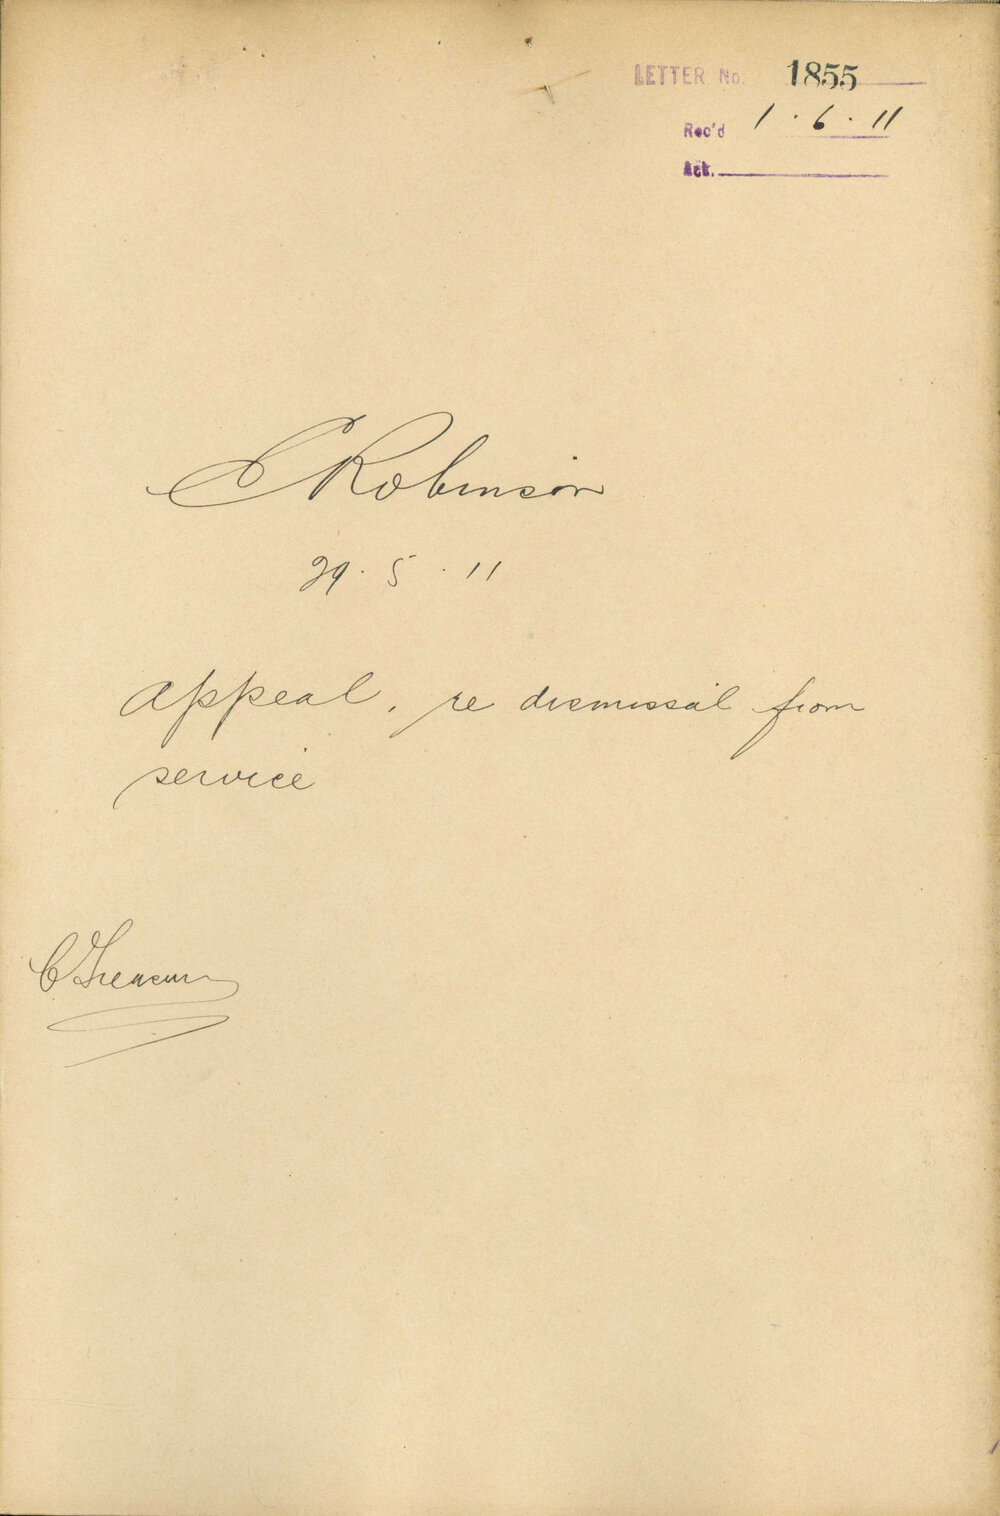 LETTER No. 1855
Rec'd 1 . 6 . 11
Ack.
C Robinson
29 . 5 . 11
Appeal, re dismissal from
service
C